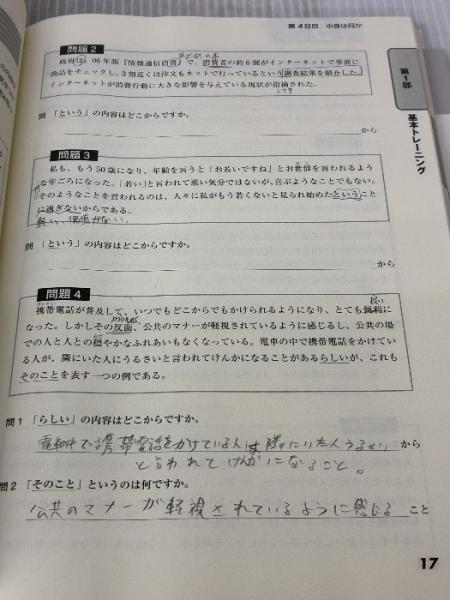 第4日目 中身は何か
第1部
基本トレーニング
問題2
政府は、06年版『情報通信白書』で、消費者の約6割がインターネットで事前に
商品をチェックし、3割近くは注文もネットで行っているという調査結果を紹介した。
インターネットが消費行動に大きな影響を与えている現状が指摘された。
問 「という」の内容はどこからですか。
から
問題3
私も、もう50歳になり、年齢を言うと「お若いですね」とお世辞を言われるよう
な年ごろになった。「若い」と言われて悪い気分ではないが、喜ぶようなことでもない。
そのようなことを言われるのは、人々に私がもう若くないと見られ始めたということ
に過ぎないからである。
問 「という」の内容はどこからですか。
から
問題4
携帯電話が普及して、いつでもどこからでもかけられるようになり、とても便利に
なった。しかしその反面、公共のマナーが軽視されているように感じるし、公共の場
での人と人との穏やかなふれあいもなくなっている。電車の中で携帯電話をかけてい
る人が、隣にいた人にうるさいと言われてけんかになることがあるらしいが、これも
そのことを表す一つの例である。
問1 「らしい」の内容はどこからですか。
電車中では携帯電話をかけている人は隣にいた人うるさい から
と言われてけんかになること。
問2 「そのこと」というのは何ですか。
公共のマナーが軽視されているように感じる こと
17